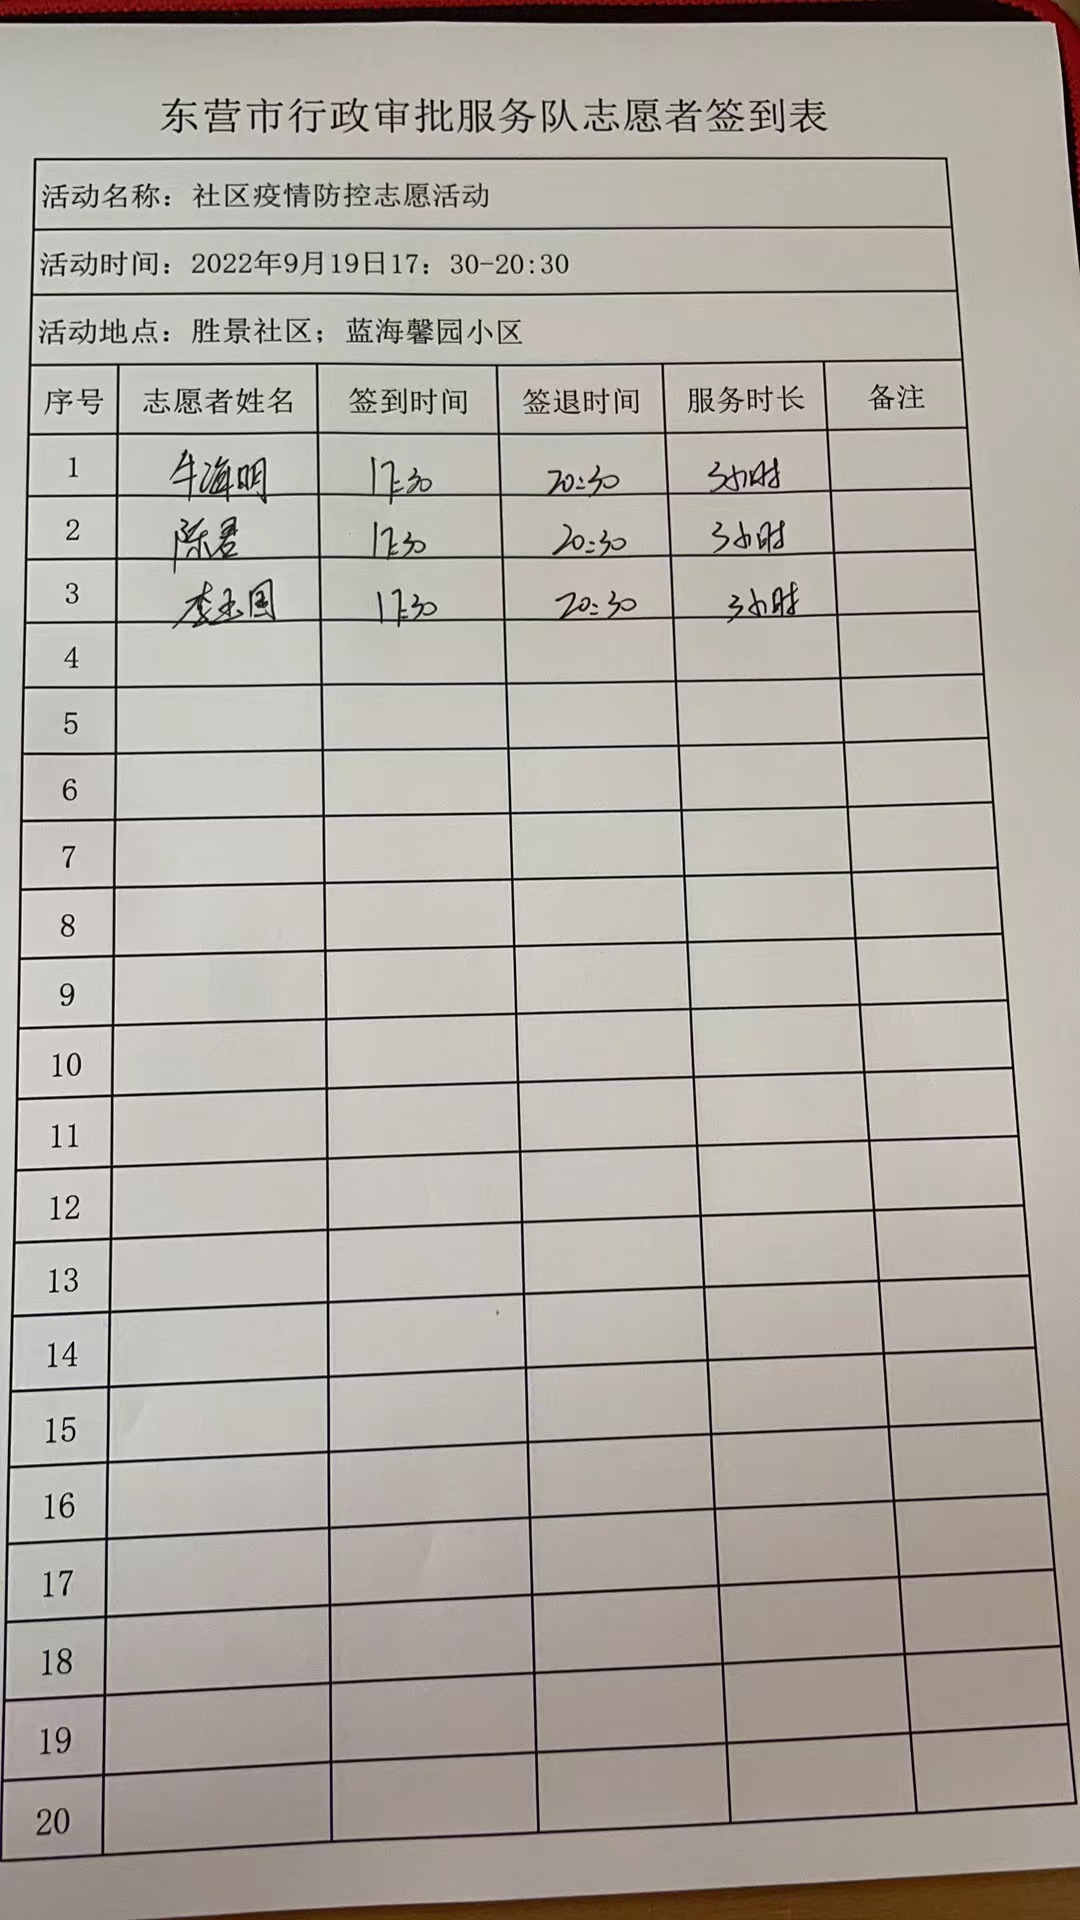 东营市行政审批服务队志愿者签到表
活动名称：社区疫情防控志愿活动
活动时间：2022年9月19日17：30-20:30
活动地点：胜景社区；蓝海馨园小区
序号 志愿者姓名 签到时间 签退时间 服务时长 备注
1 牛海明 17:30 20:30 3小时
2 陈君 17:30 20:30 3小时
3 李玉国 17:30 20:30 3小时
4
5
6
7
8
9
10
11
12
13
14
15
16
17
18
19
20